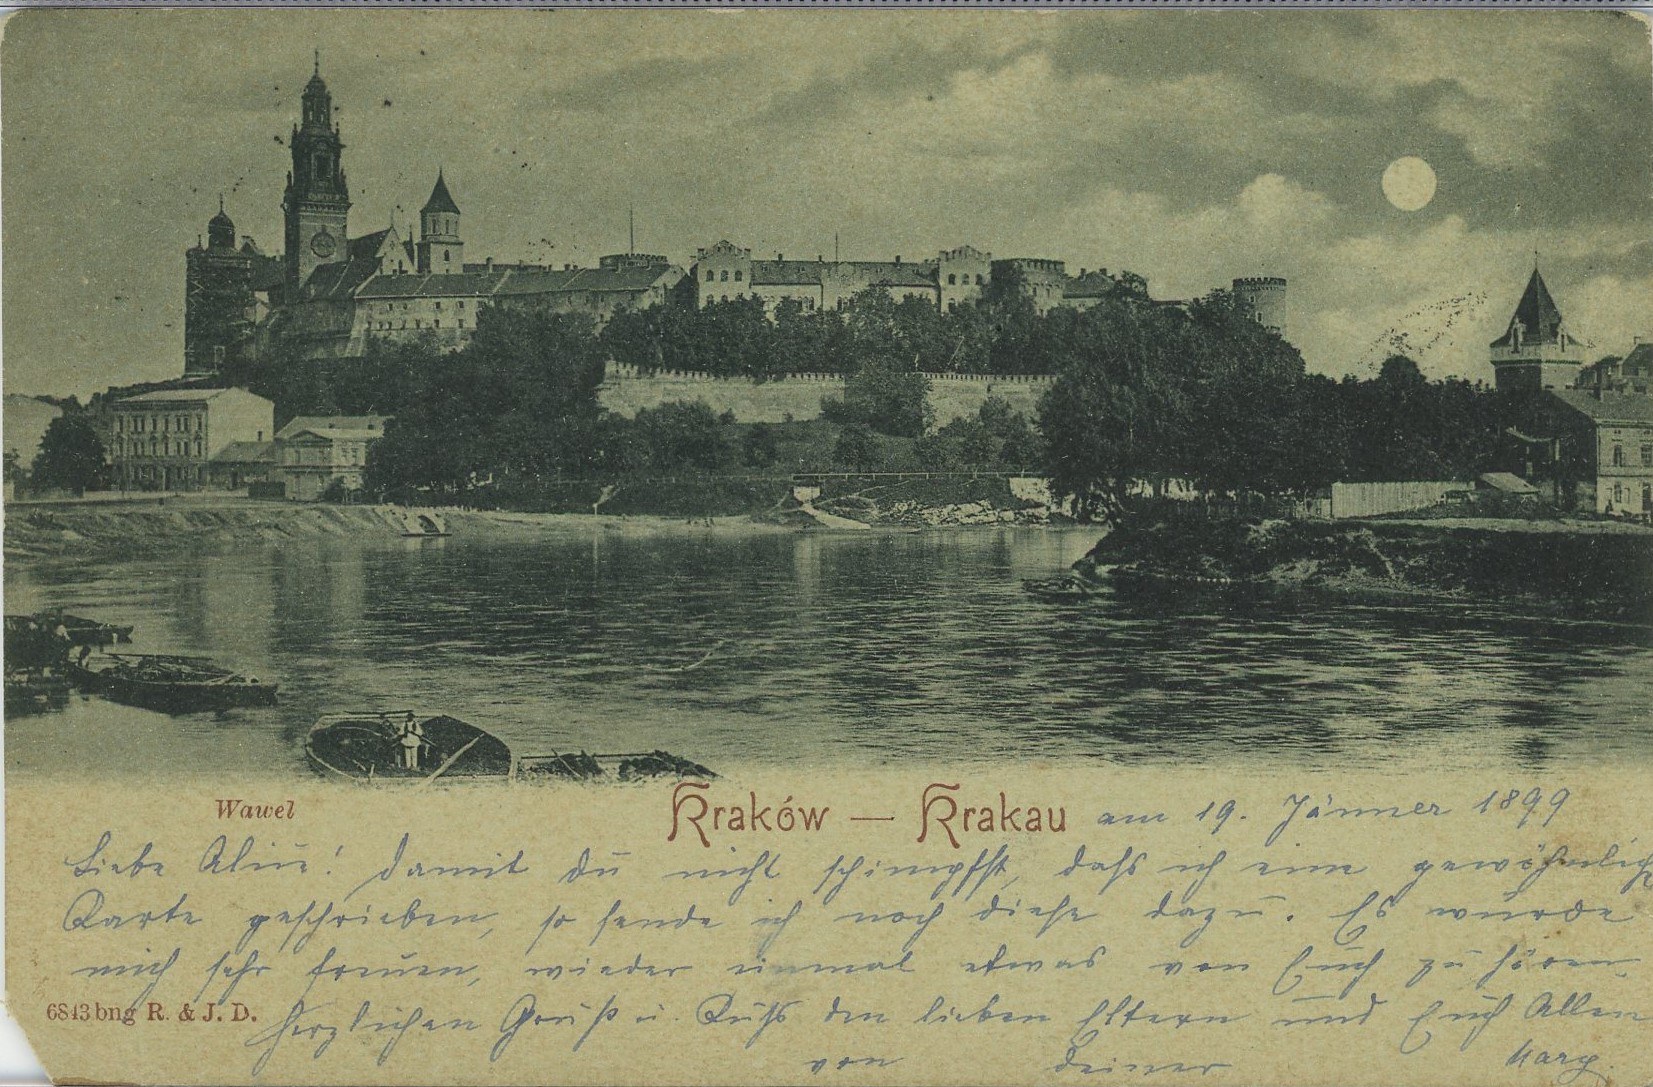 Wawel
Kraków — Krakau am 19. Jänner 1899
Liebe Aline! Damit du nicht schimpfst, daß ich eine gewöhnliche
Karte geschrieben, so sende ich noch diese dazu. Es würde
mich sehr freuen, wieder einmal etwas von Euch zu hören.
6843 bng R. & J. D. Herzlichen Gruß u. Kuß den lieben Eltern und Euch Allen
von deiner Marg.